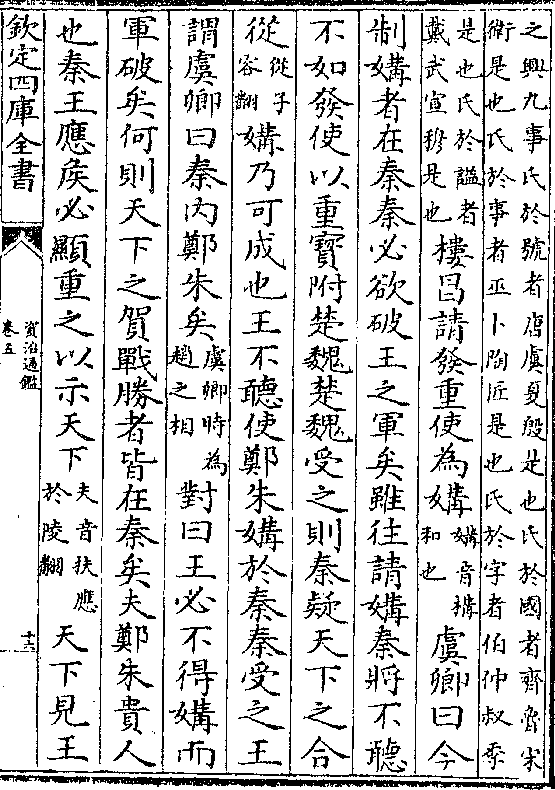 之興九事氏於號者唐虞夏殷是也氏於國者齊魯宋
衛是也氏於事者巫卜陶匠是也氏於字者伯仲叔季
是也氏於謚者
戴武宣穆是也
樓昌請發重使為媾
媾音搆
和也
虞卿曰今
制媾者在秦秦必欲破王之軍矣雖往請媾秦將不聽
不如發使以重寶附楚魏楚魏受之則秦疑天下之合
從
從子
容翻
媾乃可成也王不聽使鄭朱媾於秦秦受之王
謂虞卿曰秦內鄭朱矣
虞卿時為
趙之相
對曰王必不得媾而
軍破矣何則天下之賀戰勝者皆在秦矣夫鄭朱貴人
也秦王應侯必顯重之以示天下
夫音扶應
於陵翻
天下見王
欽定四庫全書
資治通鑑
卷五
十六